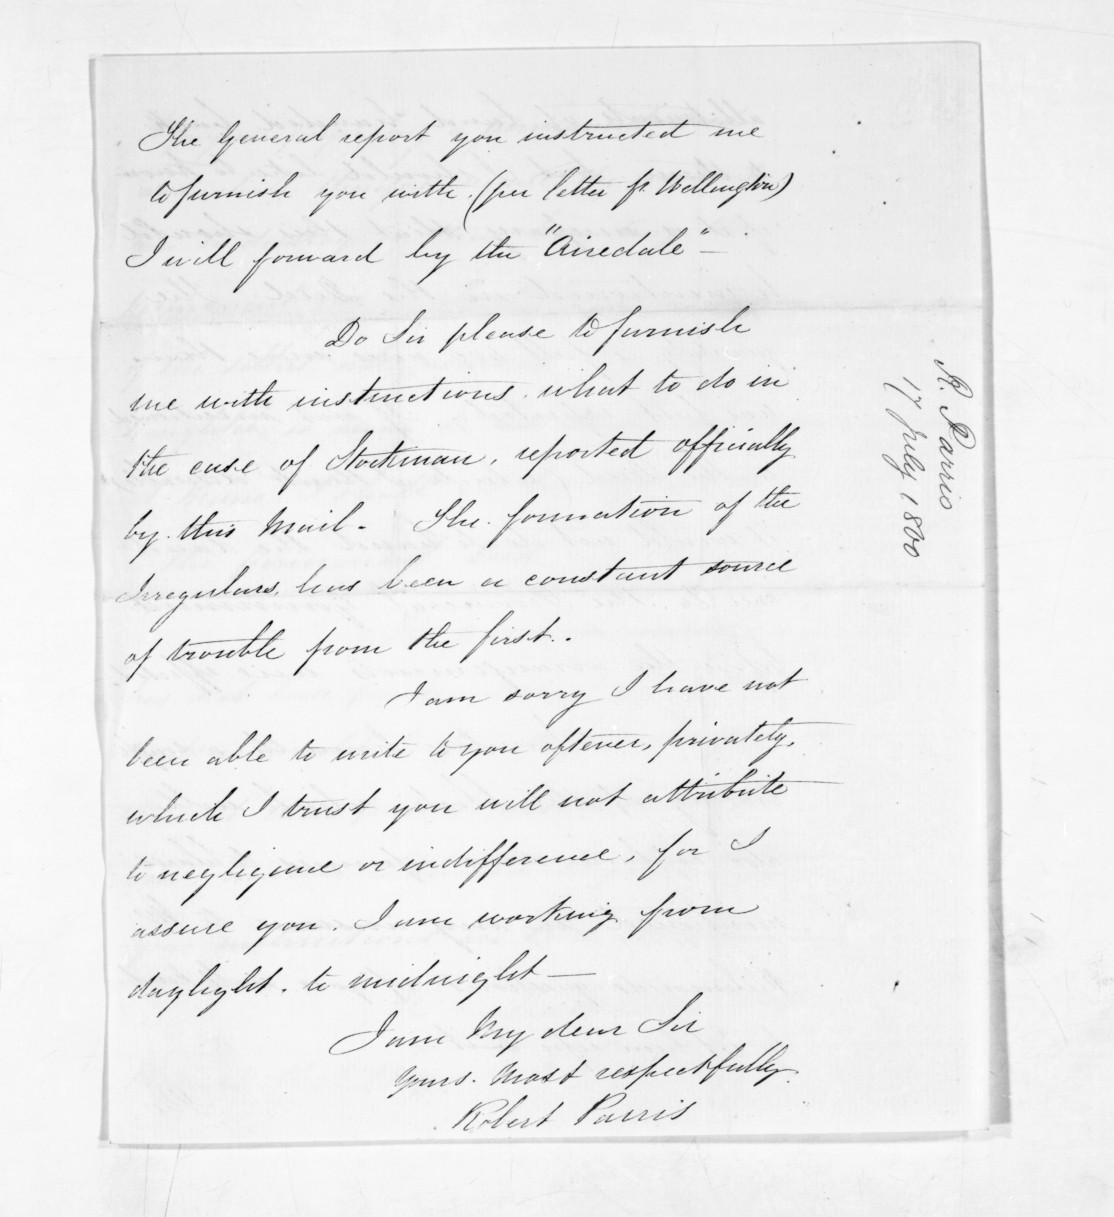 The General report you instructed me
to furnish you with. (per letter fr. Wellington)
I will forward by the "Airedale" —
Do Sir please to furnish
me with instructions. what to do in
the case of Stockman, reported officially
by this Mail. The formation of the
Irregulars, has been a constant source
of trouble from the first.
I am sorry I have not
been able to write to you oftener, privately,
which I trust you will not attribute
to negligence or indifference, for I
assure you. I am working from
daylight. to midnight —
I am My dear Sir
Yours. Most respectfully
Robert Parris
R. Parris
17 July 1860